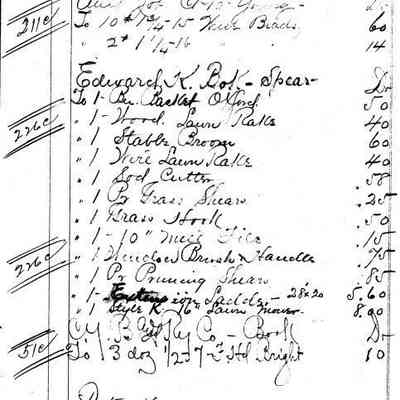 211c To 10 # 1 3/4-15 Wire Brads 60
" 2 # 1 1/4-16 14
Edward K. Bok - Spear - Dr
To 1- Bu. Basket 50
226c " 1- Wood Lawn Rake 40
" 1 Stable Broom 60
" 1 Wire Lawn Rake 40
" 1 Sod Cutter .58
" 1 Pr Grass Shears .25
" 1 Grass Hook .50
" 1 - 10" Mill File .15
226c " 1 Window Brush & Handle .75
" 1 Pr Pruning Shears .85
" 1- Extension Ladder - 28x20 5.60
" 1 Style K. 16" Lawn Mower 8.00
Co - Book Dr
51c To 3 doz Bright 10